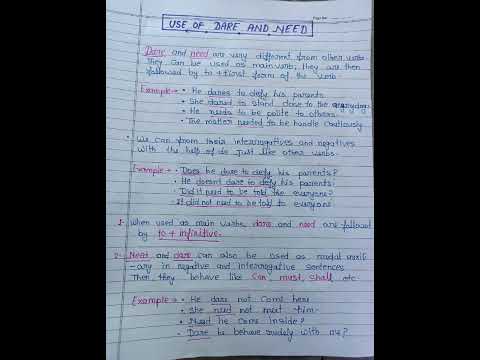 USE OF DARE AND NEED
Dare and need are very different from other verbs.
They can be used as main verb, they are then
followed by to + first form of the verb.
Example:- • He dares to defy his parents
• She dared to stand close to the
• He needs to be polite to others.
• The matter needed to be handle cautiously
• We can from their interrogatives and negatives
with the help of do just like other verbs.
Example:- • Does he dare to defy his parents?
• He doesn't dare to defy his parents.
• Did it need to be told the everyone?
• It did not need to be told to everyone
1- When used as main verbs, dare and need are followed
by to + infinitive.
2- Need and dare can also be used as modal auxili
-ary in negative and interrogative sentences
Then, they behave like Can, must, Shall etc
Example:- • He dare not come here
• She need not meet him.
• Need he come inside?
• Dare he behave rudely with me?